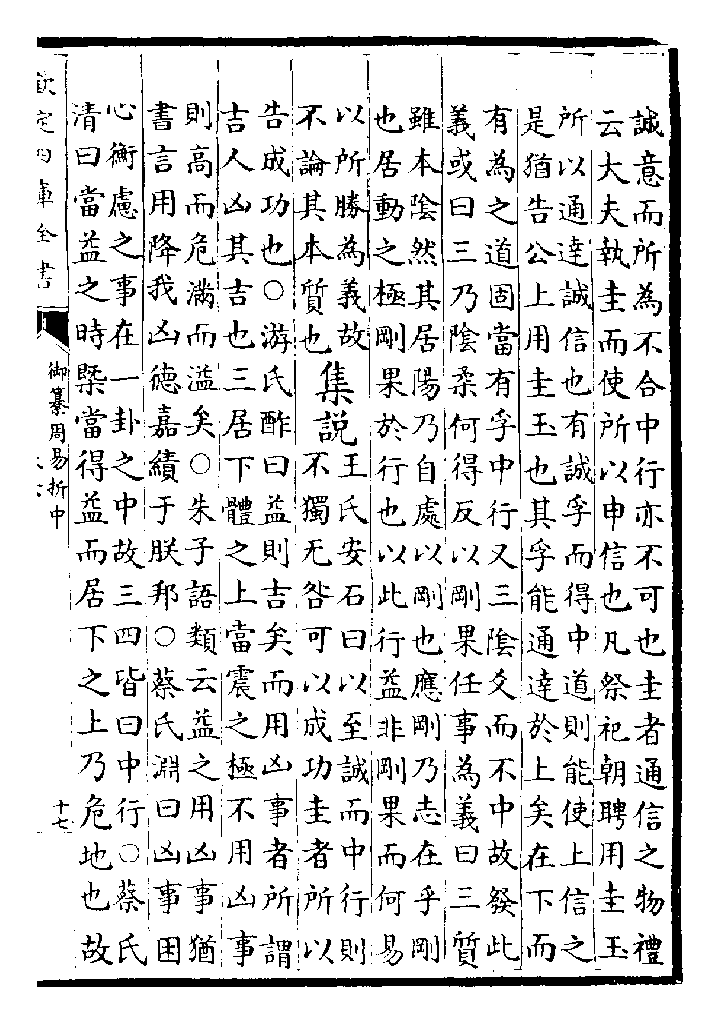 誠意而所為不合中行亦不可也圭者通信之物禮
云大夫執圭而使所以申信也凡祭祀朝聘用圭玉
所以通達誠信也有誠孚而得中道則能使上信之
是猶告公上用圭玉也其孚能通達於上矣在下而
有為之道固當有孚中行又三陰爻而不中故發此
義或曰三乃陰柔何得反以剛果任事為義曰三質
雖本陰然其居陽乃自處以剛也應剛乃志在乎剛
也居動之極剛果於行也以此行益非剛果而何易
以所勝為義故
不論其本質也
集説
王氏安石曰以至誠而中行則
不獨无咎可以成功圭者所以
告成功也○游氏酢曰益則吉矣而用凶事者所謂
吉人凶其吉也三居下體之上當震之極不用凶事
則高而危滿而溢矣○朱子語類云益之用凶事猶
書言用降我凶德嘉績于朕邦○蔡氏淵曰凶事困
心衡慮之事在一卦之中故三四皆曰中行○蔡氏
清曰當益之時槩當得益而居下之上乃危地也故
欽定四庫全書
御纂周易折中
十七